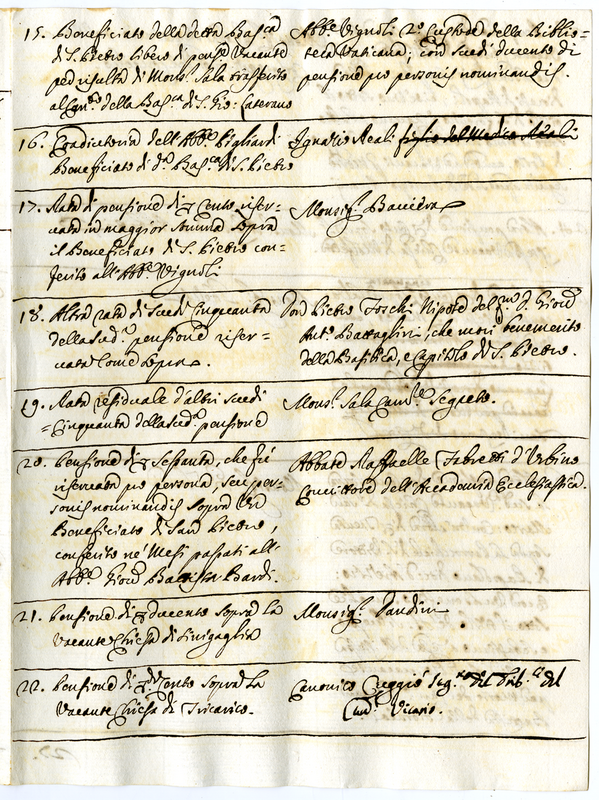 15. Beneficiato della detta Bas.ca
di S. Pietro libero di pens.e Vacante
per risulta di Mons. Sala trasferito
al Can.to della Bas.ca di S. Gio: Laterano
Abb.e Vignoli 2.o Custode della Biblio=
teca Vaticana; con scudi ducento di
pensione pro personis nominandis.
16. Coadiutoria dell'Abb.e Pigliardi
Beneficiato di d.a Bas.ca di S. Pietro
Ignazio Reali figlio del Medico Reali
17. Rata di pensione di cento riser=
vata in maggior somma sopra
il Beneficiato di S. Pietro con=
ferito all'Abb.e Vignoli
Monsig.r Baviera
18. Altra rata di Scudi Cinquanta
della sud.a pensione riser=
vata come sopra.
Don Pietro Foschi Nipote del
Ant.o Battaglini, che morì benemerito
della Basilica, e Capitolo di S. Pietro.
19. Rata residuale d'altri scudi
=Cinquanta della sud.a pensione
Mons.r Sala Cam.re Segreto.
20. Pensione di Sessanta, che fù
riservata pro persona, seu per=
sonis nominandis sopra un
Beneficiato di San Pietro,
conferito ne' Mesi passati all'
Abb.e Giov. Bardi.
Abbate Raffaelle Fabretti d'Urbino
Convittore dell'Accademia Ecclesiastica.
21. Pensione di ducento sopra la
Vacante Chiesa di Sinigaglia
Monsig.r Pandini
22. Pensione di Cento sopra la
Vacante Chiesa di Tricarico.
Canonico Reggio Seg.rio del Trib.le del
Card.l Vicario.